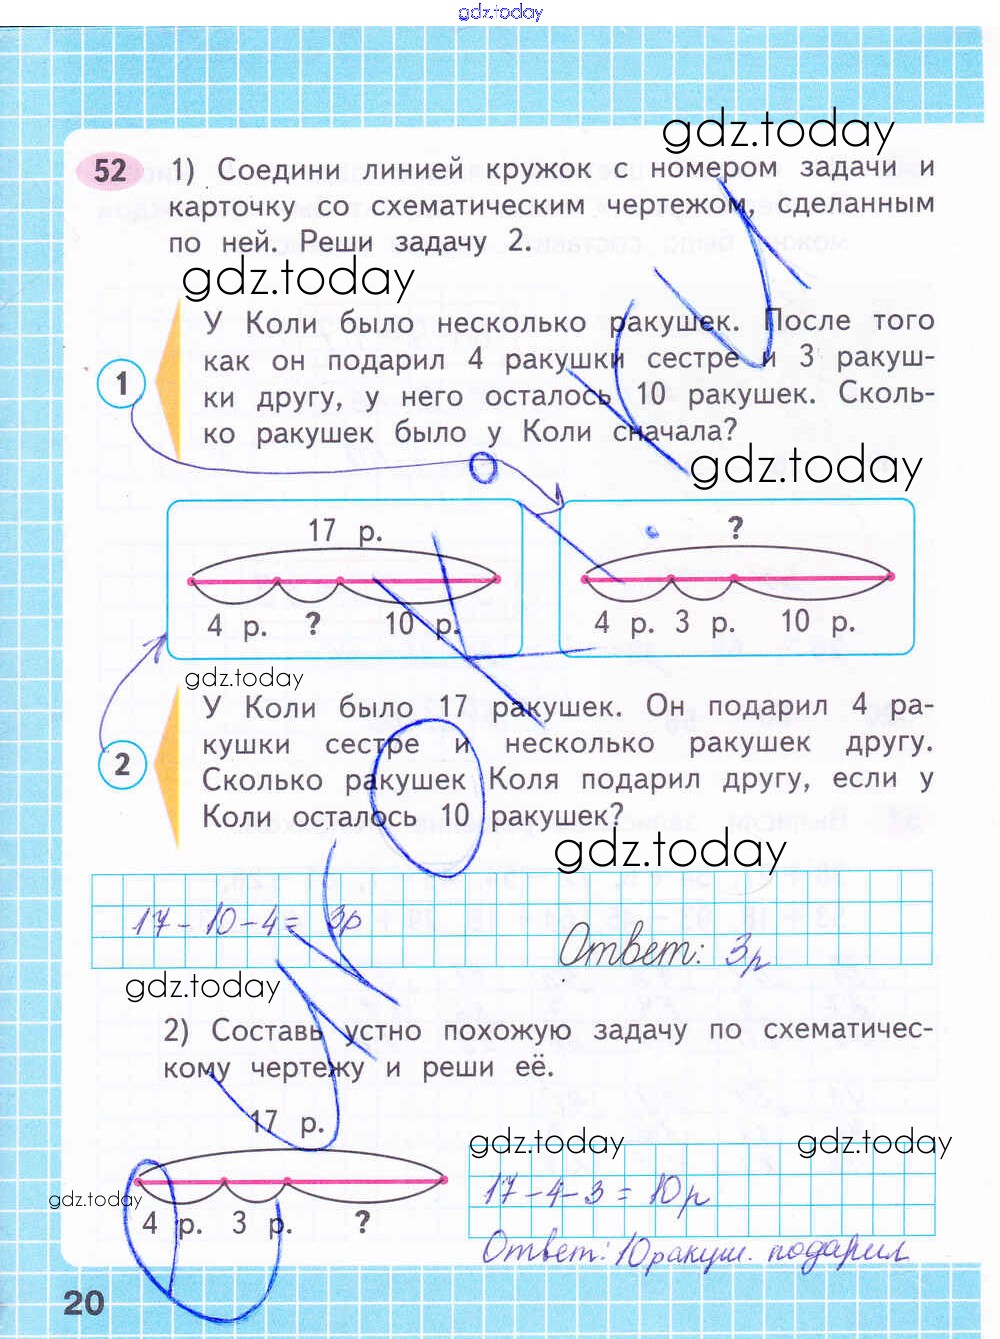 gdz.today
gdz.today
52 1) Соедини линией кружок с номером задачи и
карточку со схематическим чертежом, сделанным
по ней. Реши задачу 2.
gdz.today
У Коли было несколько ракушек. После того
как он подарил 4 ракушки сестре и 3 ракуш-
1
ки другу, у него осталось 10 ракушек. Сколь-
ко ракушек было у Коли сначала?
gdz.today
17 р.
4 р. ? 10 р.
?
4 р. 3 р. 10 р.
gdz.today
У Коли было 17 ракушек. Он подарил 4 ра-
кушки сестре и несколько ракушек другу.
2
Сколько ракушек Коля подарил другу, если у
Коли осталось 10 ракушек?
gdz.today
17-10-4= 3р
Ответ: 3р
gdz.today
2) Составь устно похожую задачу по схематичес-
кому чертежу и реши её.
17 р.
4 р. 3 р. ?
gdz.today
gdz.today
gdz.today
17-4-3=10р
Ответ: 10ракуш. подарил
20